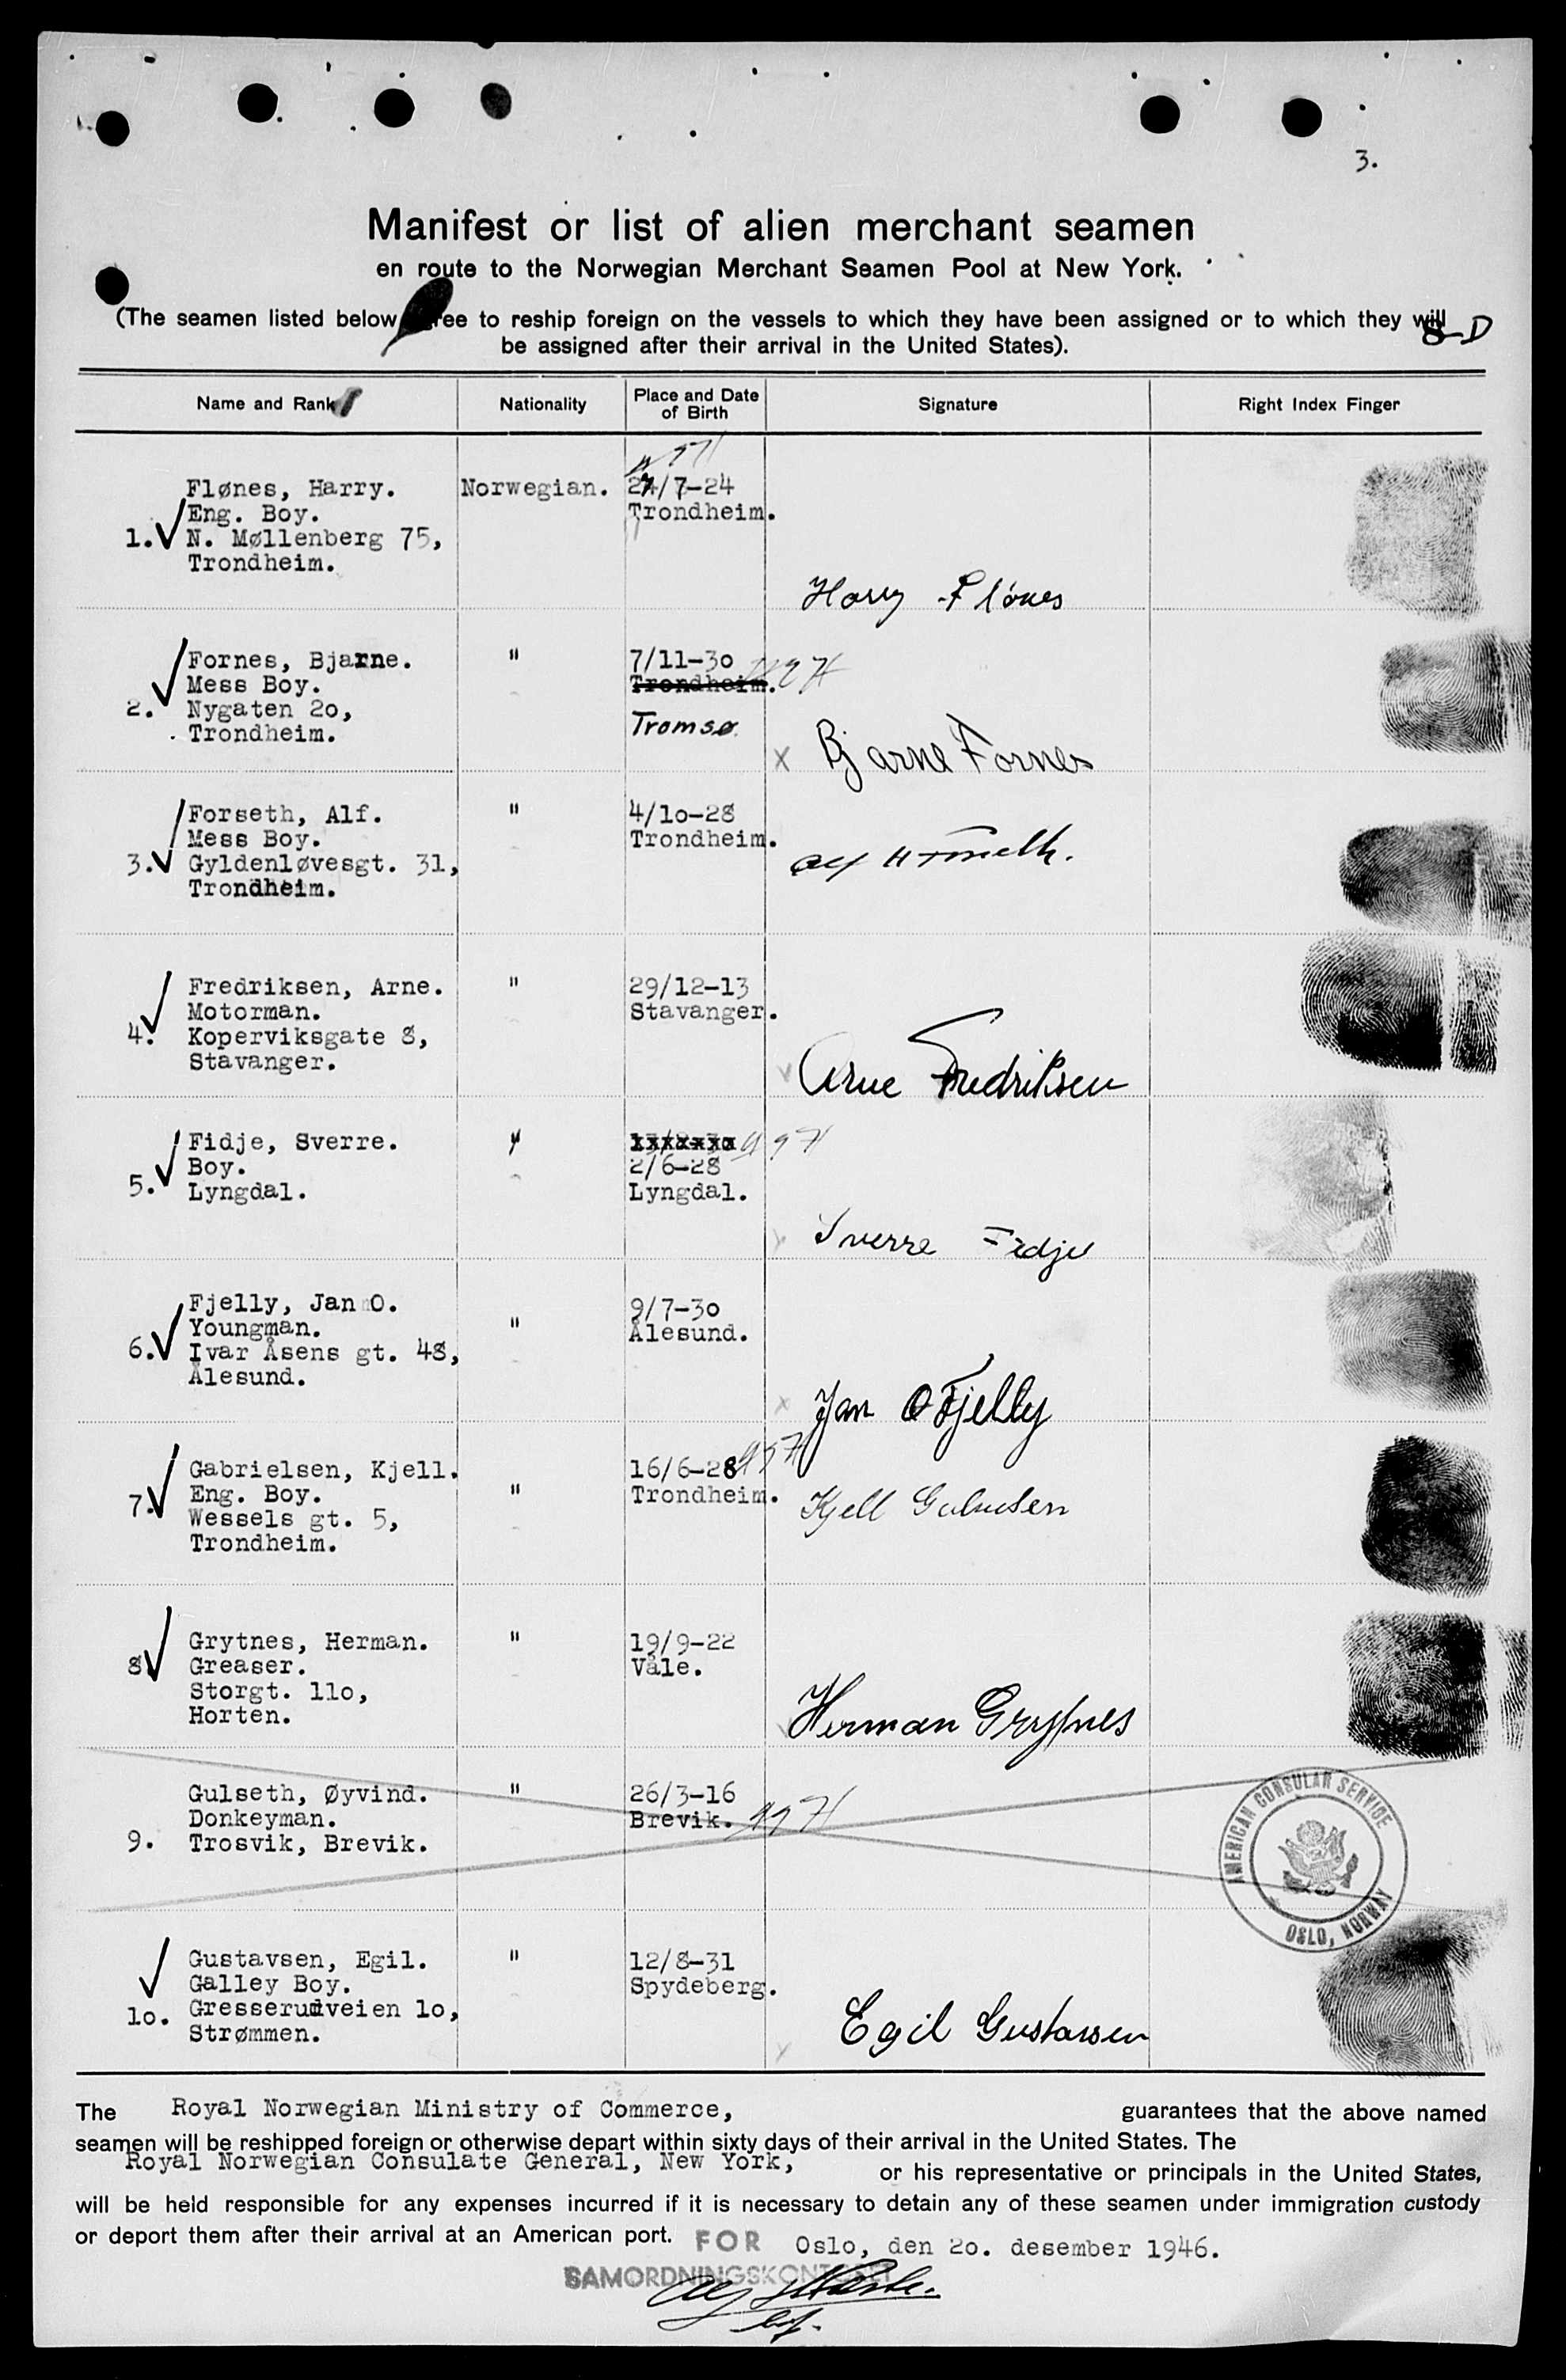 3.
Manifest or list of alien merchant seamen
en route to the Norwegian Merchant Seamen Pool at New York.
(The seamen listed below ree to reship foreign on the vessels to which they have been assigned or to which they will
8-D
be assigned after their arrival in the United States).
Name and Rank
Nationality
Place and Date
of Birth
Signature
Right Index Finger
1.
Flønes, Harry.
Eng. Boy.
N. Møllenberg 75,
Trondheim.
Norwegian.
/7-24
Trondheim.
Harry Flönes
2.
Fornes, Bjarne.
Mess Boy.
Nygaten 20,
Trondheim.
"
7/11-30
Trondheim.
Tromsø.
X Bjarne Fornes
3.
Forseth, Alf.
Mess Boy.
Gyldenløvesgt. 31,
Trondheim.
"
4/10-28
Trondheim.
Alf H Forseth.
4.
Fredriksen, Arne.
Motorman.
Koperviksgate 8,
Stavanger.
"
29/12-13
Stavanger.
Arne Fredriksen
5.
Fidje, Sverre.
Boy.
Lyngdal.
"
2/6-28
Lyngdal.
Sverre Fidje
6.
Fjelly, Jan O.
Youngman.
Ivar Åsens gt. 48,
Ålesund.
"
9/7-30
Ålesund.
x Jan O Fjelly
7.
Gabrielsen, Kjell.
Eng. Boy.
Wessels gt. 5,
Trondheim.
"
16/6-28
Trondheim.
Kjell Gabrielsen
8.
Grytnes, Herman.
Greaser.
Storgt. 110,
Horten.
"
19/9-22
Våle.
Herman Grytnes
9.
Gulseth, Øyvind.
Donkeyman.
Trosvik, Brevik.
"
26/3-16
Brevik.
AMERICAN CONSULAR SERVICE
OSLO, NORWAY
10.
Gustavsen, Egil.
Galley Boy.
Gresserudveien 10,
Strømmen.
"
12/8-31
Spydeberg.
Egil Gustavsen
The Royal Norwegian Ministry of Commerce, guarantees that the above named
seamen will be reshipped foreign or otherwise depart within sixty days of their arrival in the United States. The
Royal Norwegian Consulate General, New York, or his representative or principals in the United States,
will be held responsible for any expenses incurred if it is necessary to detain any of these seamen under immigration custody
or deport them after their arrival at an American port. FOR Oslo, den 20. desember 1946.
SAMORDNINGSKONTORET